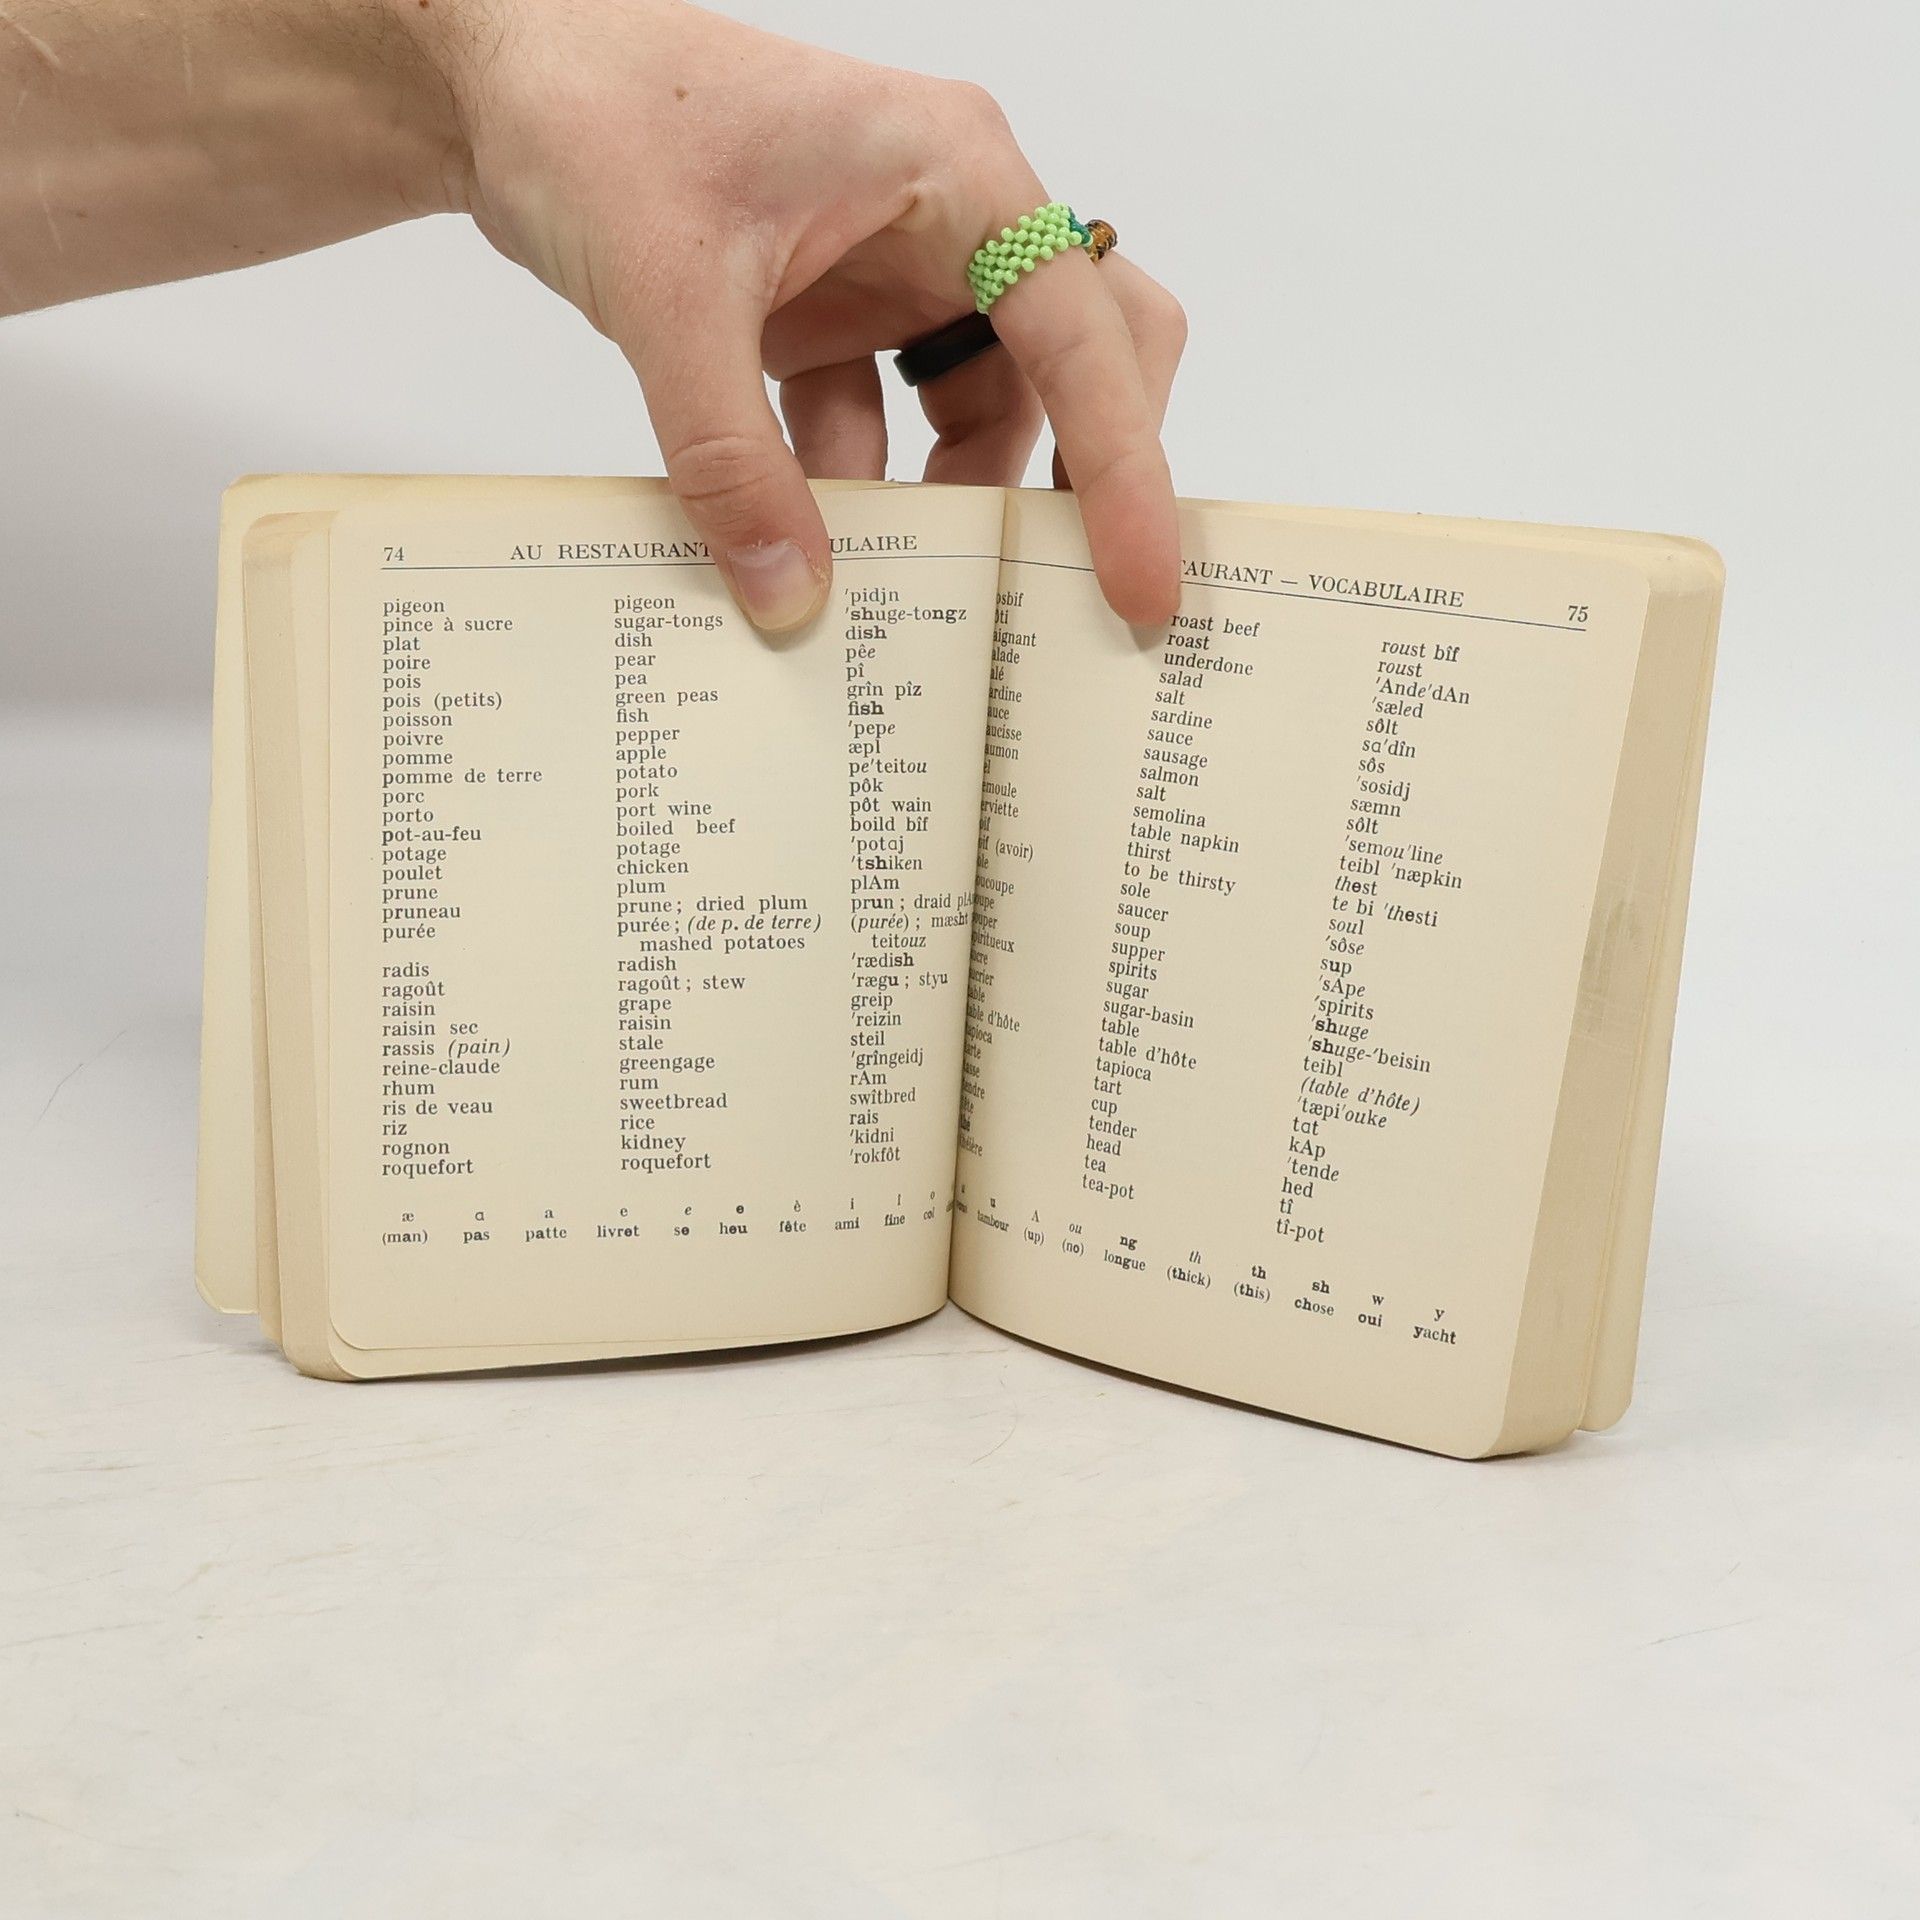 74 AU RESTAURANT ULAIRE
pigeon pigeon 'pidjn
pince à sucre sugar-tongs 'shuge-tongz
plat dish dish
poire pear pêe
pois pea pî
pois (petits) green peas grîn pîz
poisson fish fish
poivre pepper 'pepe
pomme apple æpl
pomme de terre potato pe'teitou
porc pork pôk
porto port wine pôt wain
pot-au-feu boiled beef boild bîf
potage potage 'potɑj
poulet chicken 'tshiken
prune plum plAm
pruneau prune; dried plum prun; draid
purée purée; (de p. de terre) (purée); mæsht
mashed potatoes teitouz
radis radish 'rædish
ragoût ragoût; stew 'rægu; styu
raisin grape greip
raisin sec raisin 'reizin
rassis (pain) stale steil
reine-claude greengage 'grîngeidj
rhum rum rAm
ris de veau sweetbread swîtbred
riz rice rais
rognon kidney 'kidni
roquefort roquefort 'rokfôt
æ ɑ a e e e è i î o
(man) pas patte livret se heu fête ami fine col
TAURANT — VOCABULAIRE 75
osbif roast beef roust bîf
ôti roast roust
aignant underdone 'Ande'dAn
alade salad 'sæled
alé salt sôlt
ardine sardine sɑ'dîn
auce sauce sôs
aucisse sausage 'sosidj
aumon salmon sæmn
el salt sôlt
emoule semolina 'semou'line
erviette table napkin teibl 'næpkin
oif thirst thest
oif (avoir) to be thirsty te bi 'thesti
ole sole soul
oucoupe saucer 'sôse
oupe soup sup
ouper supper 'sApe
piritueux spirits 'spirits
ucre sugar 'shuge
ucrier sugar-basin 'shuge-'beisin
table table teibl
table d'hôte table d'hôte (table d'hôte)
tapioca tapioca 'tæpi'ouke
tarte tart tɑt
tasse cup kAp
tendre tender 'tende
tête head hed
thé tea tî
théière tea-pot tî-pot
u A ou ng th th sh w y
tambour (up) (no) longue (thick) (this) chose oui yacht